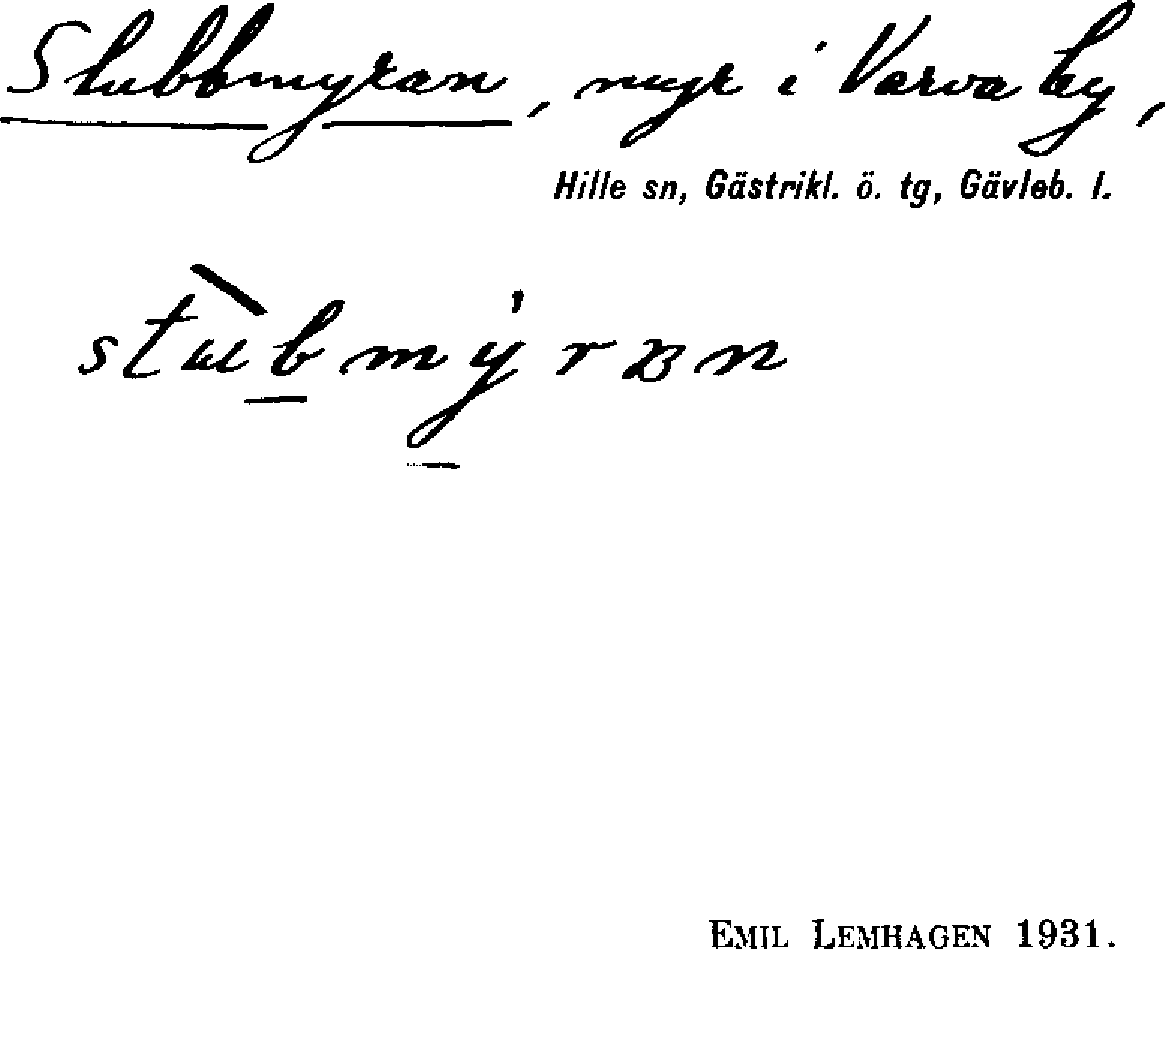 Stubbmyran, myr i Varva by,
Hille sn, Gästrikl. ö. tg, Gävleb. l.
EMIL LEMHAGEN 1931.